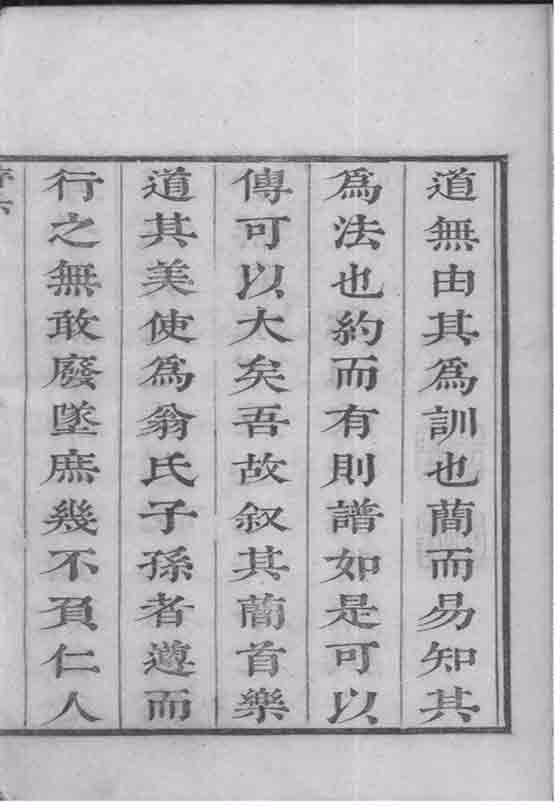 道無由其為訓也蕳而易知其
為法也約而有則譜如是可以
傳可以大矣吾故叙其蕳首樂
道其美使為翁氏子孫者遵而
行之無敢廢墜庶幾不負仁人